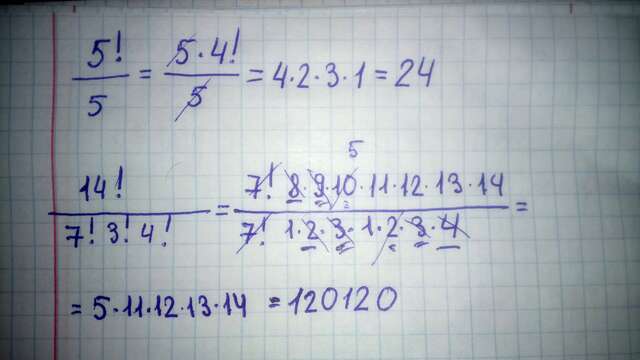 5!/5 = 5·4!/5 = 4·2·3·1 = 24
5
14!/7! 3! 4! = 7! 8·9·10·11·12·13·14/7! 1·2·3·1·2·3·4 =
= 5·11·12·13·14 = 120120